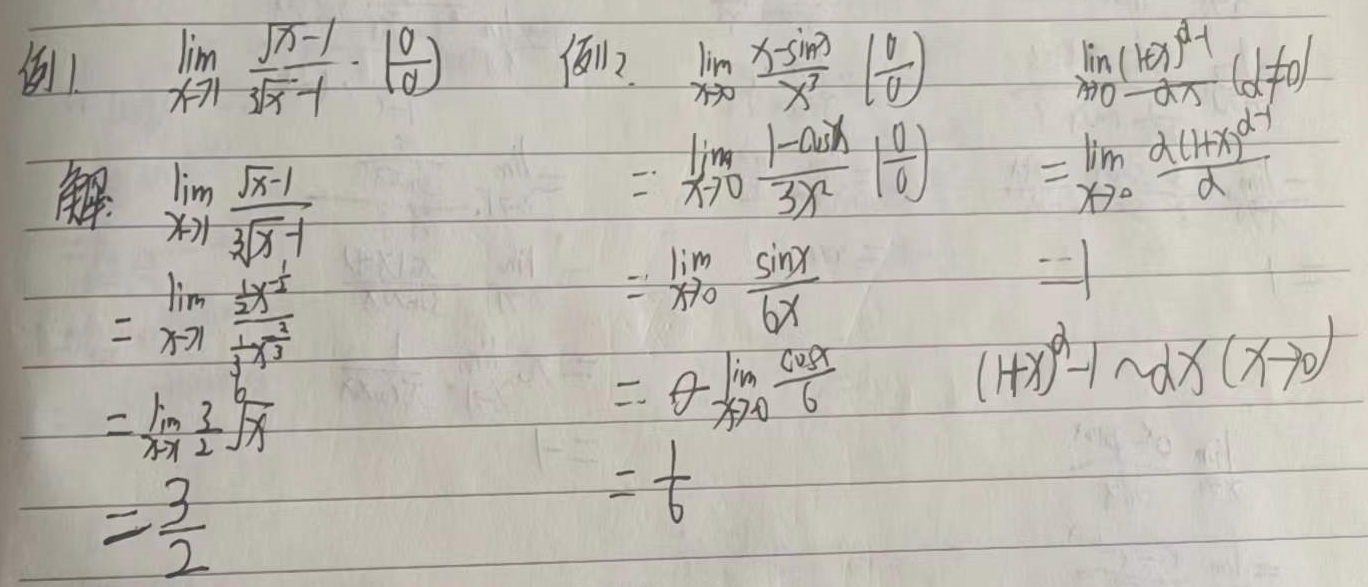 例1. lim x→1 (√x-1)/(∛x-1) · (0/0)
解: lim x→1 (√x-1)/(∛x-1)
= lim x→1 (½x^(-½))/(⅓x^(-⅔))
= lim x→x 3/2 ⁶√x
= 3/2
例2. lim x→0 (x-sinx)/x³ (0/0)
= lim x→0 (1-cosx)/(3x²) (0/0)
= lim x→0 sinx/(6x)
= lim x→0 cosx/6
= 1/6
lim x→0 ((1+x)^α-1)/(αx) (α≠0)
= lim x→0 (α(1+x)^(α-1))/α
=1
(1+x)^α-1~αx (x→0)